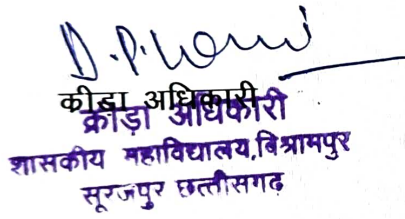 D.P.
कीडा अधिकारी
क्रीड़ा अधिकारी
शासकीय महाविद्यालय,विश्रामपुर
सूरजपुर छत्तीसगढ़